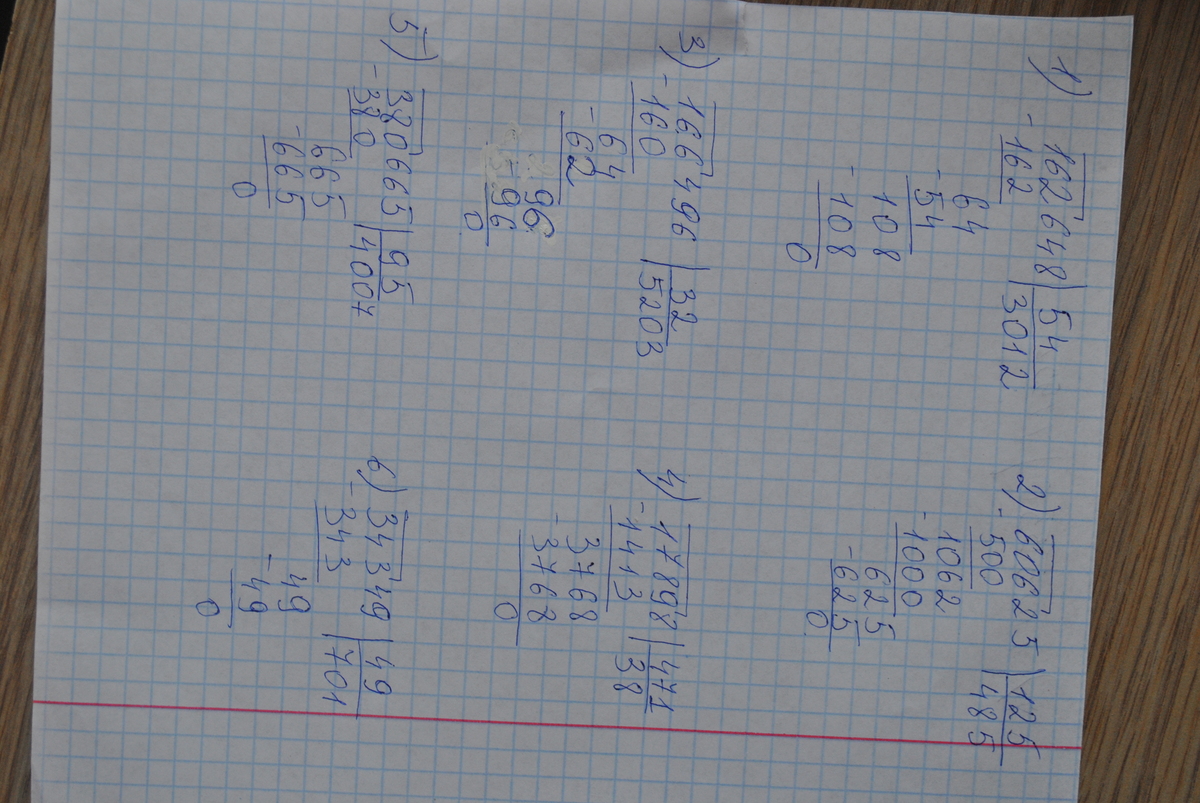 1) -162648 | 54
-162 | 3012
64
-54
108
-108
0
2) -60625 | 125
500 | 485
-1062
1000
-625
625
0
3) -166496 | 32
160 | 5203
-64
62
96
-96
0
4) -17898 | 471
1413 | 38
-3768
3768
0
5) -380665 | 95
380 | 4007
-665
665
0
6) -34349 | 49
343 | 701
-49
49
0